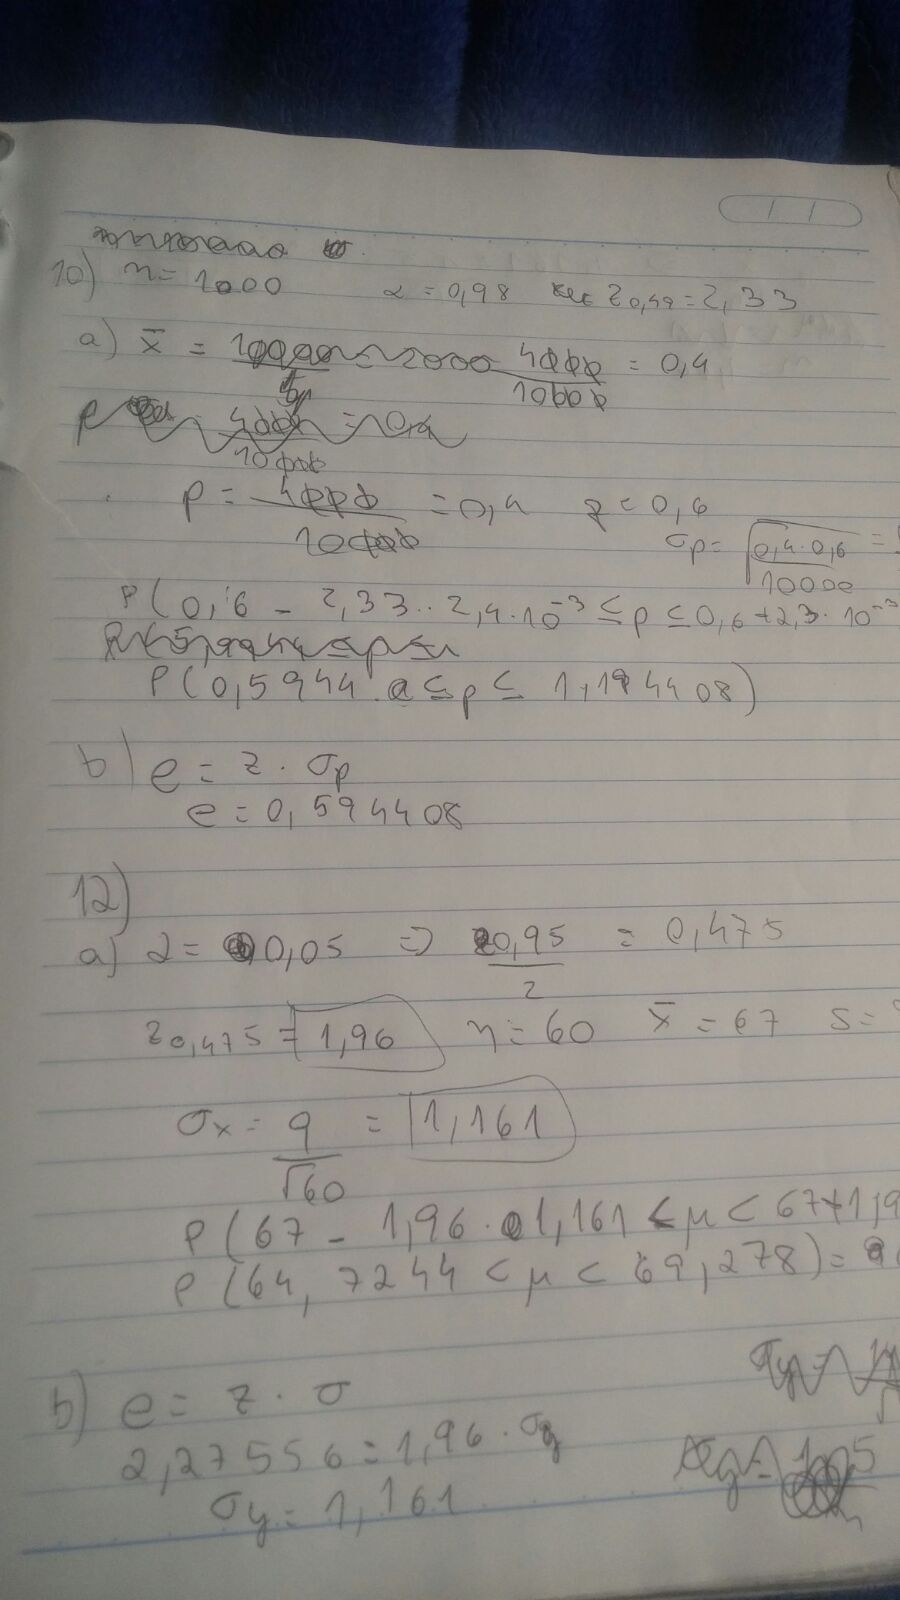 10) n = 1000 α = 0,98 Z0,49 = 2,33
a) x̄ = 4000/10000 = 0,4
p = 4000/10000 = 0,4 q = 0,6
σp = √(0,4 · 0,6/10000) =
P(0,6 - 2,33 · 2,4 · 10⁻³ ≤ p ≤ 0,6 + 2,3 · 10⁻³
P(0,5944 ≤ p ≤ 1,194408)
b) e = z · σp
e = 0,594408
12)
a) α = 0,05 ⇒ 0,95/2 = 0,475
Z0,475 = 1,96 n = 60 x̄ = 67 S =
σx = 9/√60 = 1,161
P(67 - 1,96 · 1,161 < μ < 67 + 1,9
P(64,7244 < μ < 69,278) =
b) e = z · σ
2,27556 = 1,96 · σy
σy = 1,161